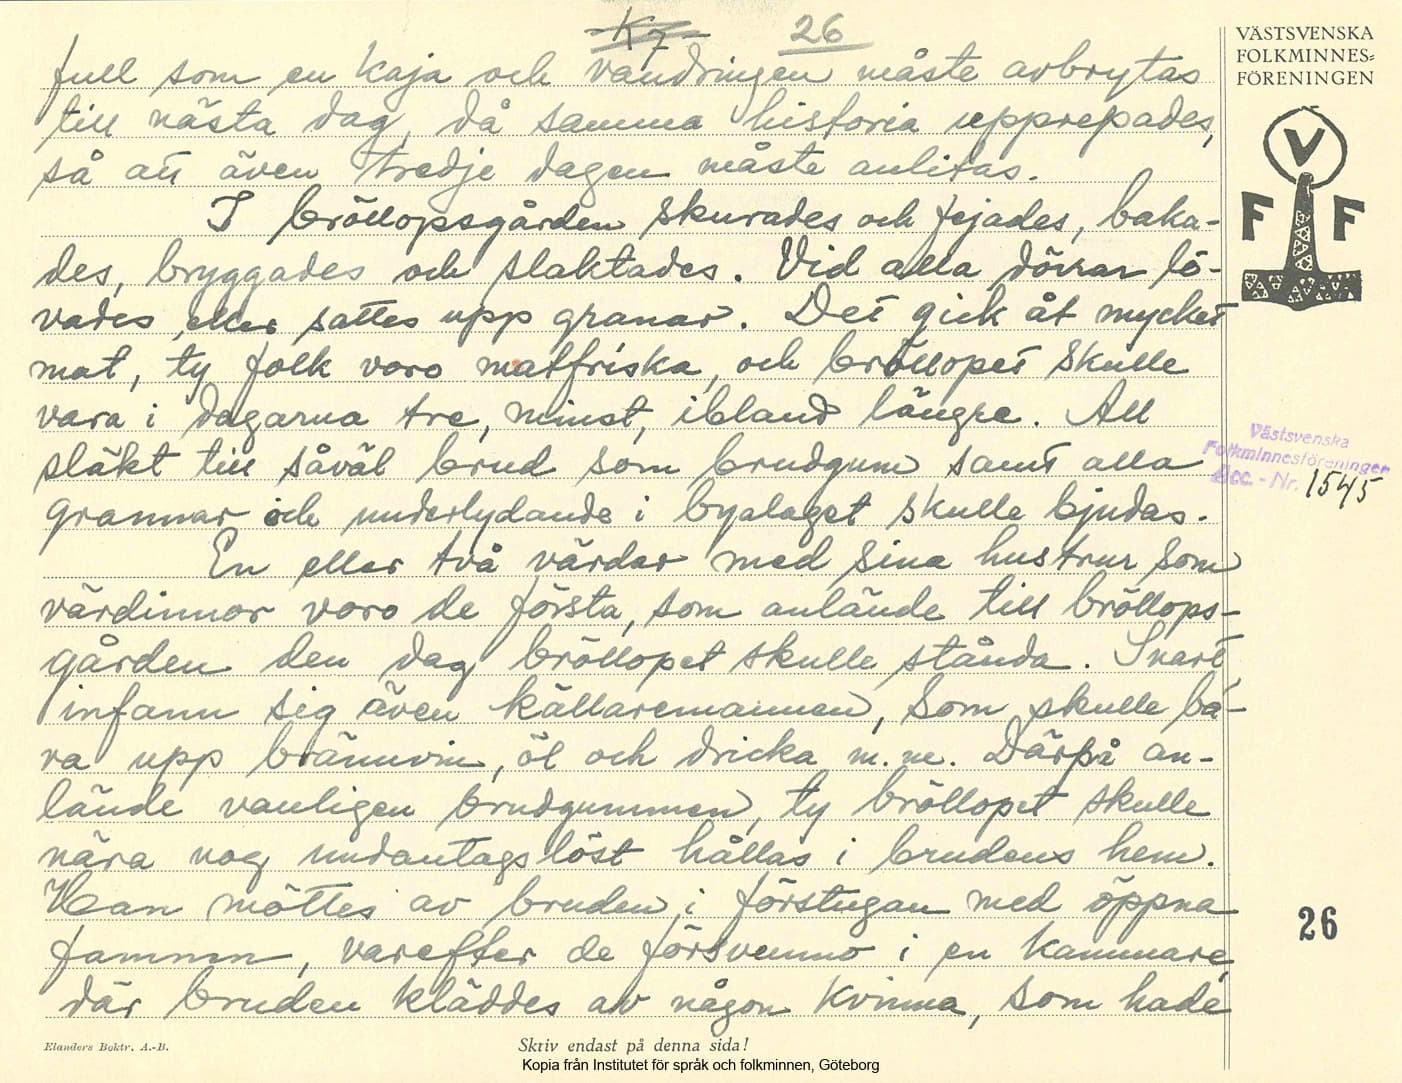 K 7
26
full som en kaja och vandringen måste avbrytas
till nästa dag, då samma historia upprepades,
så att även tredje dagen måste anlitas.
I bröllopsgården skurades och fejades, baka-
des, bryggades och slaktades. Vid alla dörrar lö-
vades eller sattes upp granar. Det gick åt mycket
mat, ty folk voro matfriska, och bröllopet skulle
vara i dagarna tre, minst, ibland längre. All
släkt till såväl brud som brudgum samt alla
grannar och underlydande i byalaget skulle bjudas.
En eller två värdar med sina hustrur som
värdinnor voro de första, som anlände till bröllops-
gården den dag bröllopet skulle stånda. Snart
infann sig även källaremannen, som skulle bä-
ra upp brännvin, öl och dricka m.m. Därpå an-
lände vanligen brudgummen, ty bröllopet skulle
nära nog undantagslöst hållas i brudens hem.
Han möttes av bruden i förstugan med öppna
famnen, varefter de försvunno i en kammare,
där bruden kläddes av någon kvinna, som hade
VÄSTSVENSKA
FOLKMINNES=
FÖRENINGEN
V
F F
Västsvenska
Folkminnesföreningen
Acc. - Nr. 1545
26
Elanders Boktr. A.-B.
Skriv endast på denna sida!
Kopia från Institutet för språk och folkminnen, Göteborg